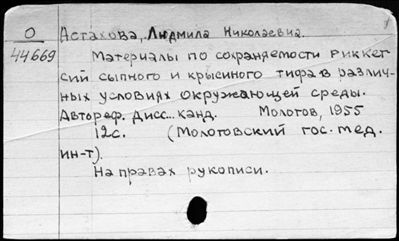 О
44669
Астахова, Людмила Николаевна.
Материалы по сохраняемости риккет
сий сыпного и крысиного тифа в различ-
ных условиях окружающей среды.
Автореф. дисс... канд. Молотов, 1955
12с. (Молотовский гос. мед.
ин-т).
На правах рукописи.